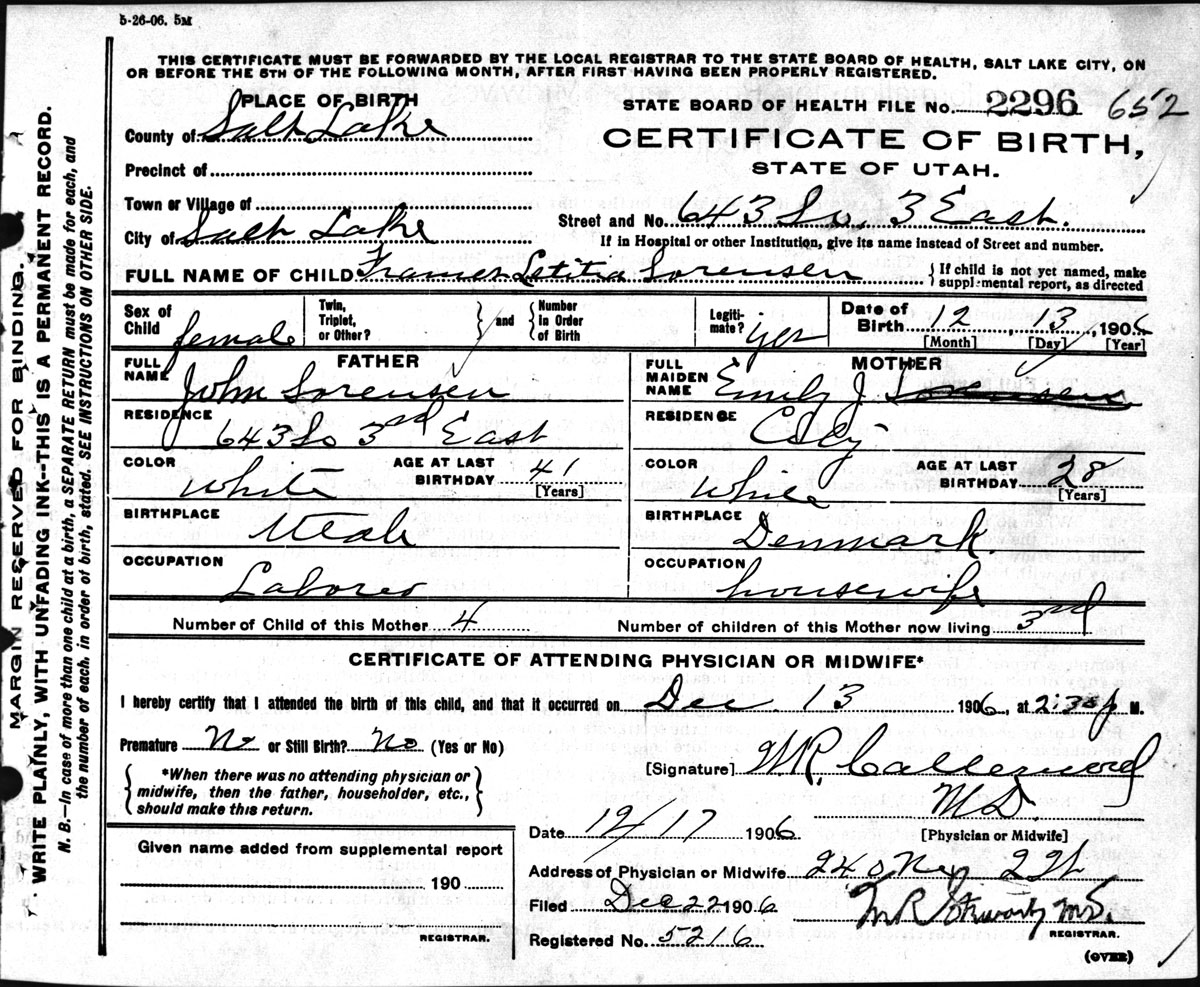 5-26-06. 5M
THIS CERTIFICATE MUST BE FORWARDED BY THE LOCAL REGISTRAR TO THE STATE BOARD OF HEALTH, SALT LAKE CITY, ON
OR BEFORE THE 5TH OF THE FOLLOWING MONTH, AFTER FIRST HAVING BEEN PROPERLY REGISTERED.
PLACE OF BIRTH
STATE BOARD OF HEALTH FILE No. 2296 652
County of Salt Lake
CERTIFICATE OF BIRTH,
Precinct of
STATE OF UTAH.
Town or Village of
Street and No. 643 So. 3 East.
City of Salt Lake
If in Hospital or other Institution, give its name instead of Street and number.
FULL NAME OF CHILD Frances Letitia Sorensen { If child is not yet named, make
supplemental report, as directed
Sex of Child female Twin, Triplet, or Other? } and { Number in Order of Birth Legiti-mate? yes Date of Birth 12, 13, 1906
[Month] [Day] [Year]
FATHER
MOTHER
FULL NAME John Sorensen
FULL MAIDEN NAME Emily J. Sorensen
RESIDENCE 643 So 3rd East
RESIDENCE
COLOR White AGE AT LAST BIRTHDAY 41 [Years]
COLOR White AGE AT LAST BIRTHDAY 28 [Years]
BIRTHPLACE Utah
BIRTHPLACE Denmark.
OCCUPATION Laborer
OCCUPATION housewife
Number of Child of this Mother 4 Number of children of this Mother now living 3rd
CERTIFICATE OF ATTENDING PHYSICIAN OR MIDWIFE*
I hereby certify that I attended the birth of this child, and that it occurred on Dec. 13 1906, at 2:30 p M.
Premature No or Still Birth? No (Yes or No)
[Signature] W.R. Calderwood
M.D.
[Physician or Midwife]
{ *When there was no attending physician or
midwife, then the father, householder, etc.,
should make this return. }
Date 12/17 1906
Given name added from supplemental report
190
REGISTRAR.
Address of Physician or Midwife 240
Filed Dec 22 1906
M.D.
REGISTRAR.
Registered No. 5216
(OVER)
MARGIN RESERVED FOR BINDING.
WRITE PLAINLY, WITH UNFADING INK--THIS IS A PERMANENT RECORD.
N. B.—In case of more than one child at a birth, a SEPARATE RETURN must be made for each, and
the number of each, in order of birth, stated. SEE INSTRUCTIONS ON OTHER SIDE.